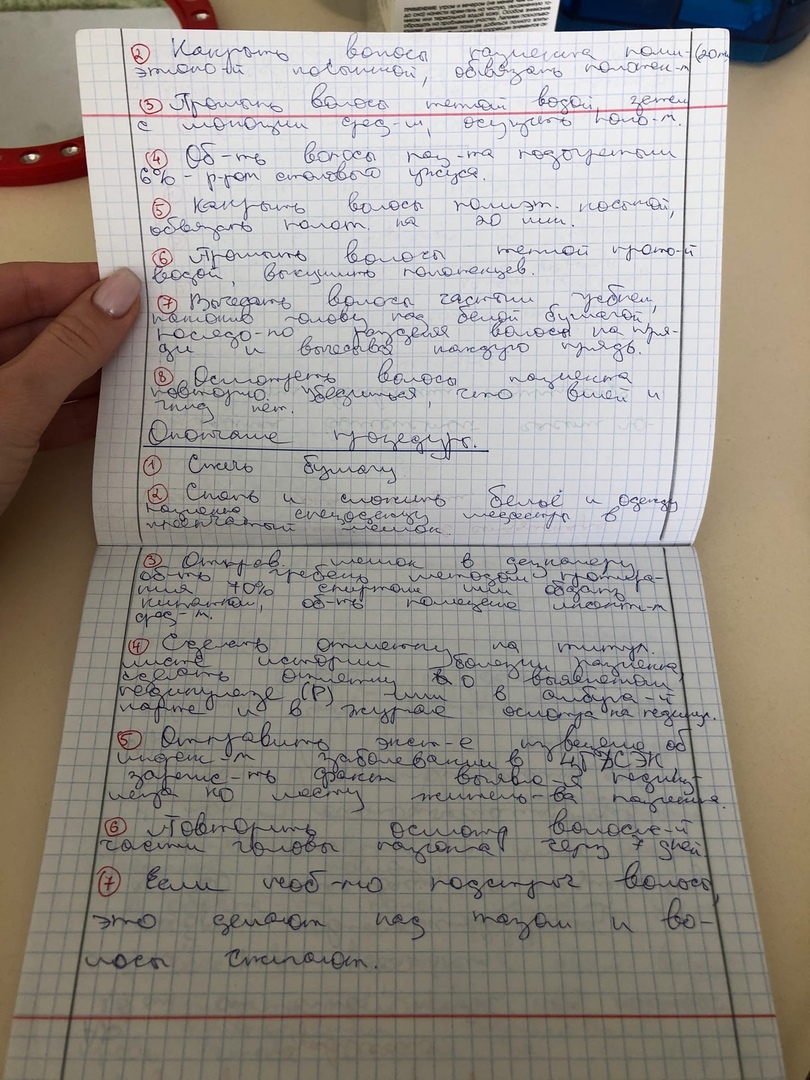 ② Накрыть волосы пациента поли- (20 м
этилено-й косынкой, обвязать полотен-м
③ Промыть волосы теплой водой, затем
с моющим сред-м, осушить поло-м.
④ Об-ть волосы пац-та подогретым
6% - р-ром столового уксуса.
⑤ Накрыть волосы полиэт. косыной,
обвязать полот. на 20 мин.
⑥ Промыть волосы теплой прото-й
водой, высушить полотенцем.
⑦ Вычесать волосы частым гребнем,
наклонив голову над белой бумагой,
последо-но разделяя волосы на пря-
ди и вычесывая каждую прядь.
⑧ Осмотреть волосы пациента
повторно. Убедиться, что вшей и
гнид нет.
Окончание процедуры.
① Сжечь бумагу
② Снять и сложить бельё и одежду
пациента спецодежду медсестры в
мешок.
③ Отправ. мешок в дезкамеру,
об-ть гребень методом протира-
ния 70% спиртом или обдать
кипятком, об-ть помещение
сред-м.
④ Сделать отметку на титул.
листе истории болезни пациента,
сделать отметку о выявлении
педикулеза (Р) или в амбула-й
карте и в журнале осмотра на педикул.
⑤ Отправить экст-е извещение об
инфек-м заболевании в ЦГСЭН
зарегис-ть факт выявле-я педику-
леза по месту житель-ва пациента.
⑥ Повторить осмотр волосис-й
части головы пациента через 7 дней.
⑦ Если необ-мо подстричь волосы,
это делают над тазом и во-
лосы сжигают.